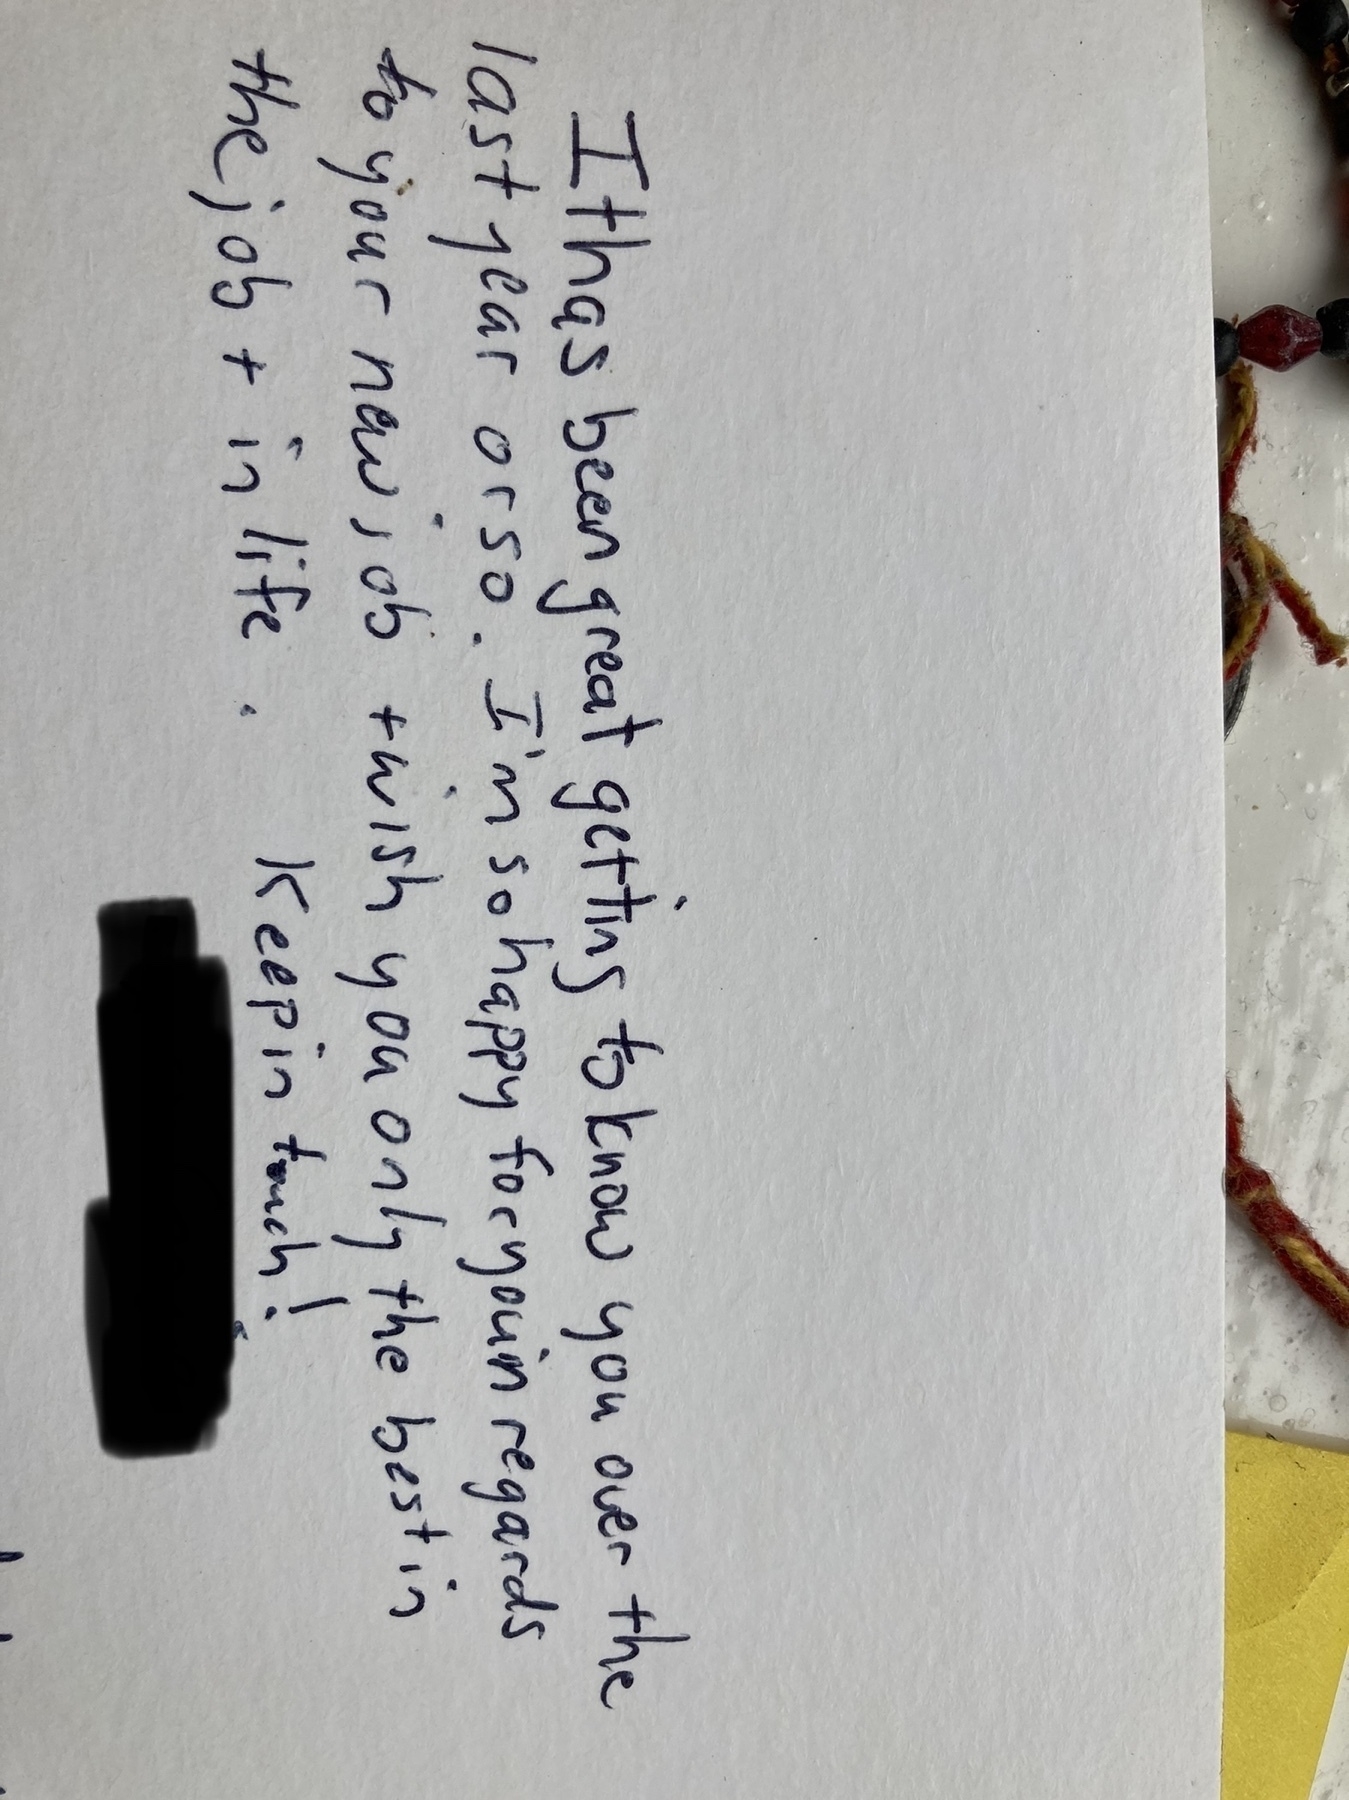 It has been great getting to know you over the
last year or so. I'm so happy for you in regards
to your new job + wish you only the best in
the job + in life. Keep in touch!